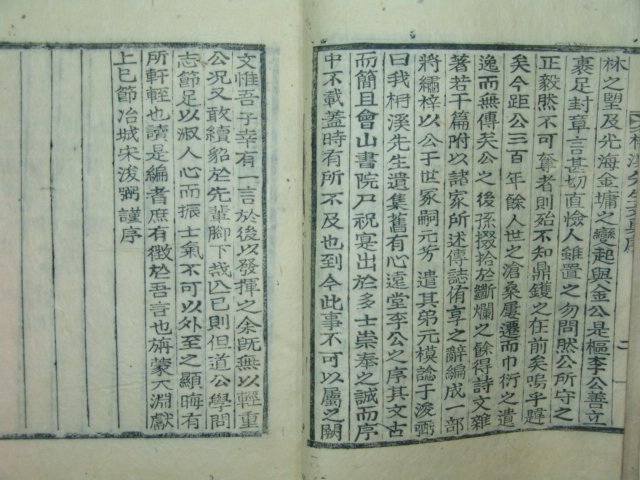 林之塈及光海金墉之變起與金公是樞李公善立
裹足封章言甚切直憸人雖置之勿問然公所守之
正毅然不可奪者則殆不知鼎鑊之在前矣嗚乎韙
矣今距公三百年餘人世之滄桑屢遷而巾衍之遺
逸而無傳矣公之後孫掇拾於斷爛之餘得詩文雜
著若干篇附以諸家所述傳誌侑享之辭編成一部
將繡梓以公于世冢嗣元芳遣其弟元模諗于浚弼
曰我桐溪先生遺集舊有心遠堂李公之序其文古
而簡且會山書院尸祝宴出於多士崇奉之誠而序
中不載蓋時有所不及也到今此事不可以屬之闕
文惟吾子幸有一言於後以發揮之余旣無以輕重
公況又敢續貂於先輩脚下哉已則但道公學問
志節足以淑人心而振士氣不可以外至之顯晦有
所軒輊也讀是編者庶有徵於吾言也旃蒙大淵獻
上巳節冶城宋浚弼謹序